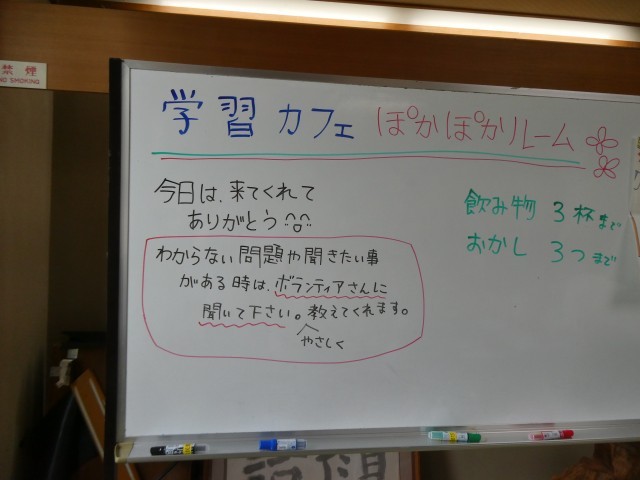 禁煙
NO SMOKING
学習カフェ ぽかぽかルーム
今日は、来てくれて
ありがとう
わからない問題や聞きたい事
がある時は、ボランティアさんに
聞いて下さい。教えてくれます。
やさしく
飲み物 3杯まで
おかし 3つまで